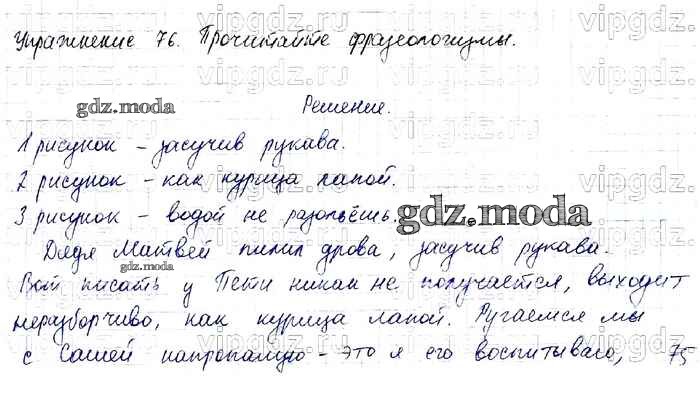 Упражнение 76. Прочитайте фразеологизмы.
gdz.moda
Решение.
1 рисунок – засучив рукава.
2 рисунок – как курица лапой.
3 рисунок – водой не разольёшь.
gdz.moda
Дядя Матвей пилил дрова, засучив рукава.
gdz.moda
Вот писать у Пети никак не получается, выходит
неразборчиво, как курица лапой. Ругаемся мы
с Сашей напропалую – это я его воспитываю,
75
vipgdz.ru